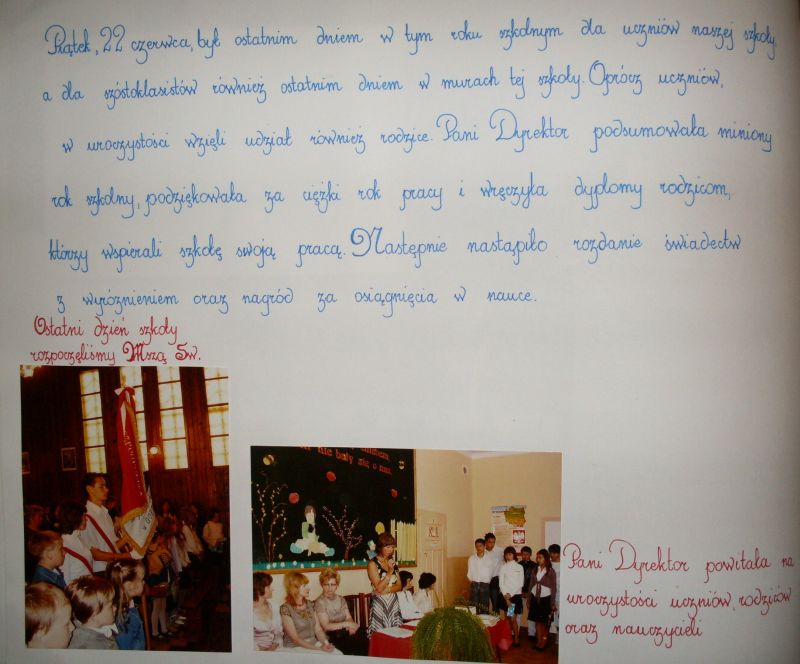 Piątek, 22 czerwca, był ostatnim dniem w tym roku szkolnym dla uczniów naszej szkoły,
a dla szóstoklasistów również ostatnim dniem w murach tej szkoły. Oprócz uczniów,
w uroczystości wzięli udział również rodzice. Pani Dyrektor podsumowała miniony
rok szkolny, podziękowała za ciężki rok pracy i wręczyła dyplomy rodzicom,
którzy wspierali szkołę swoją pracą. Następnie nastąpiło rozdanie świadectw
z wyróżnieniem oraz nagród za osiągnięcia w nauce.
Ostatni dzień szkoły
rozpoczęliśmy Mszą Św.
nie bały się o nas
Pani Dyrektor powitała na
uroczystości uczniów, rodziców
oraz nauczycieli